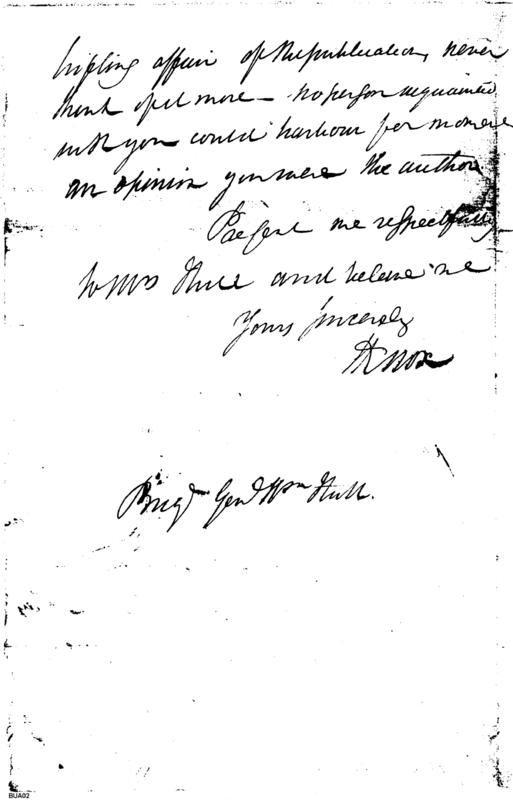 trifling affair of the publication, never
think of it more — no person acquainted
with you could harbour for moment
an opinion you were the author
Present me respectfully
to Mrs Hull and believe me
Yours sincerely
HKnox
Brigr Genl Wm Hull.
BUA02